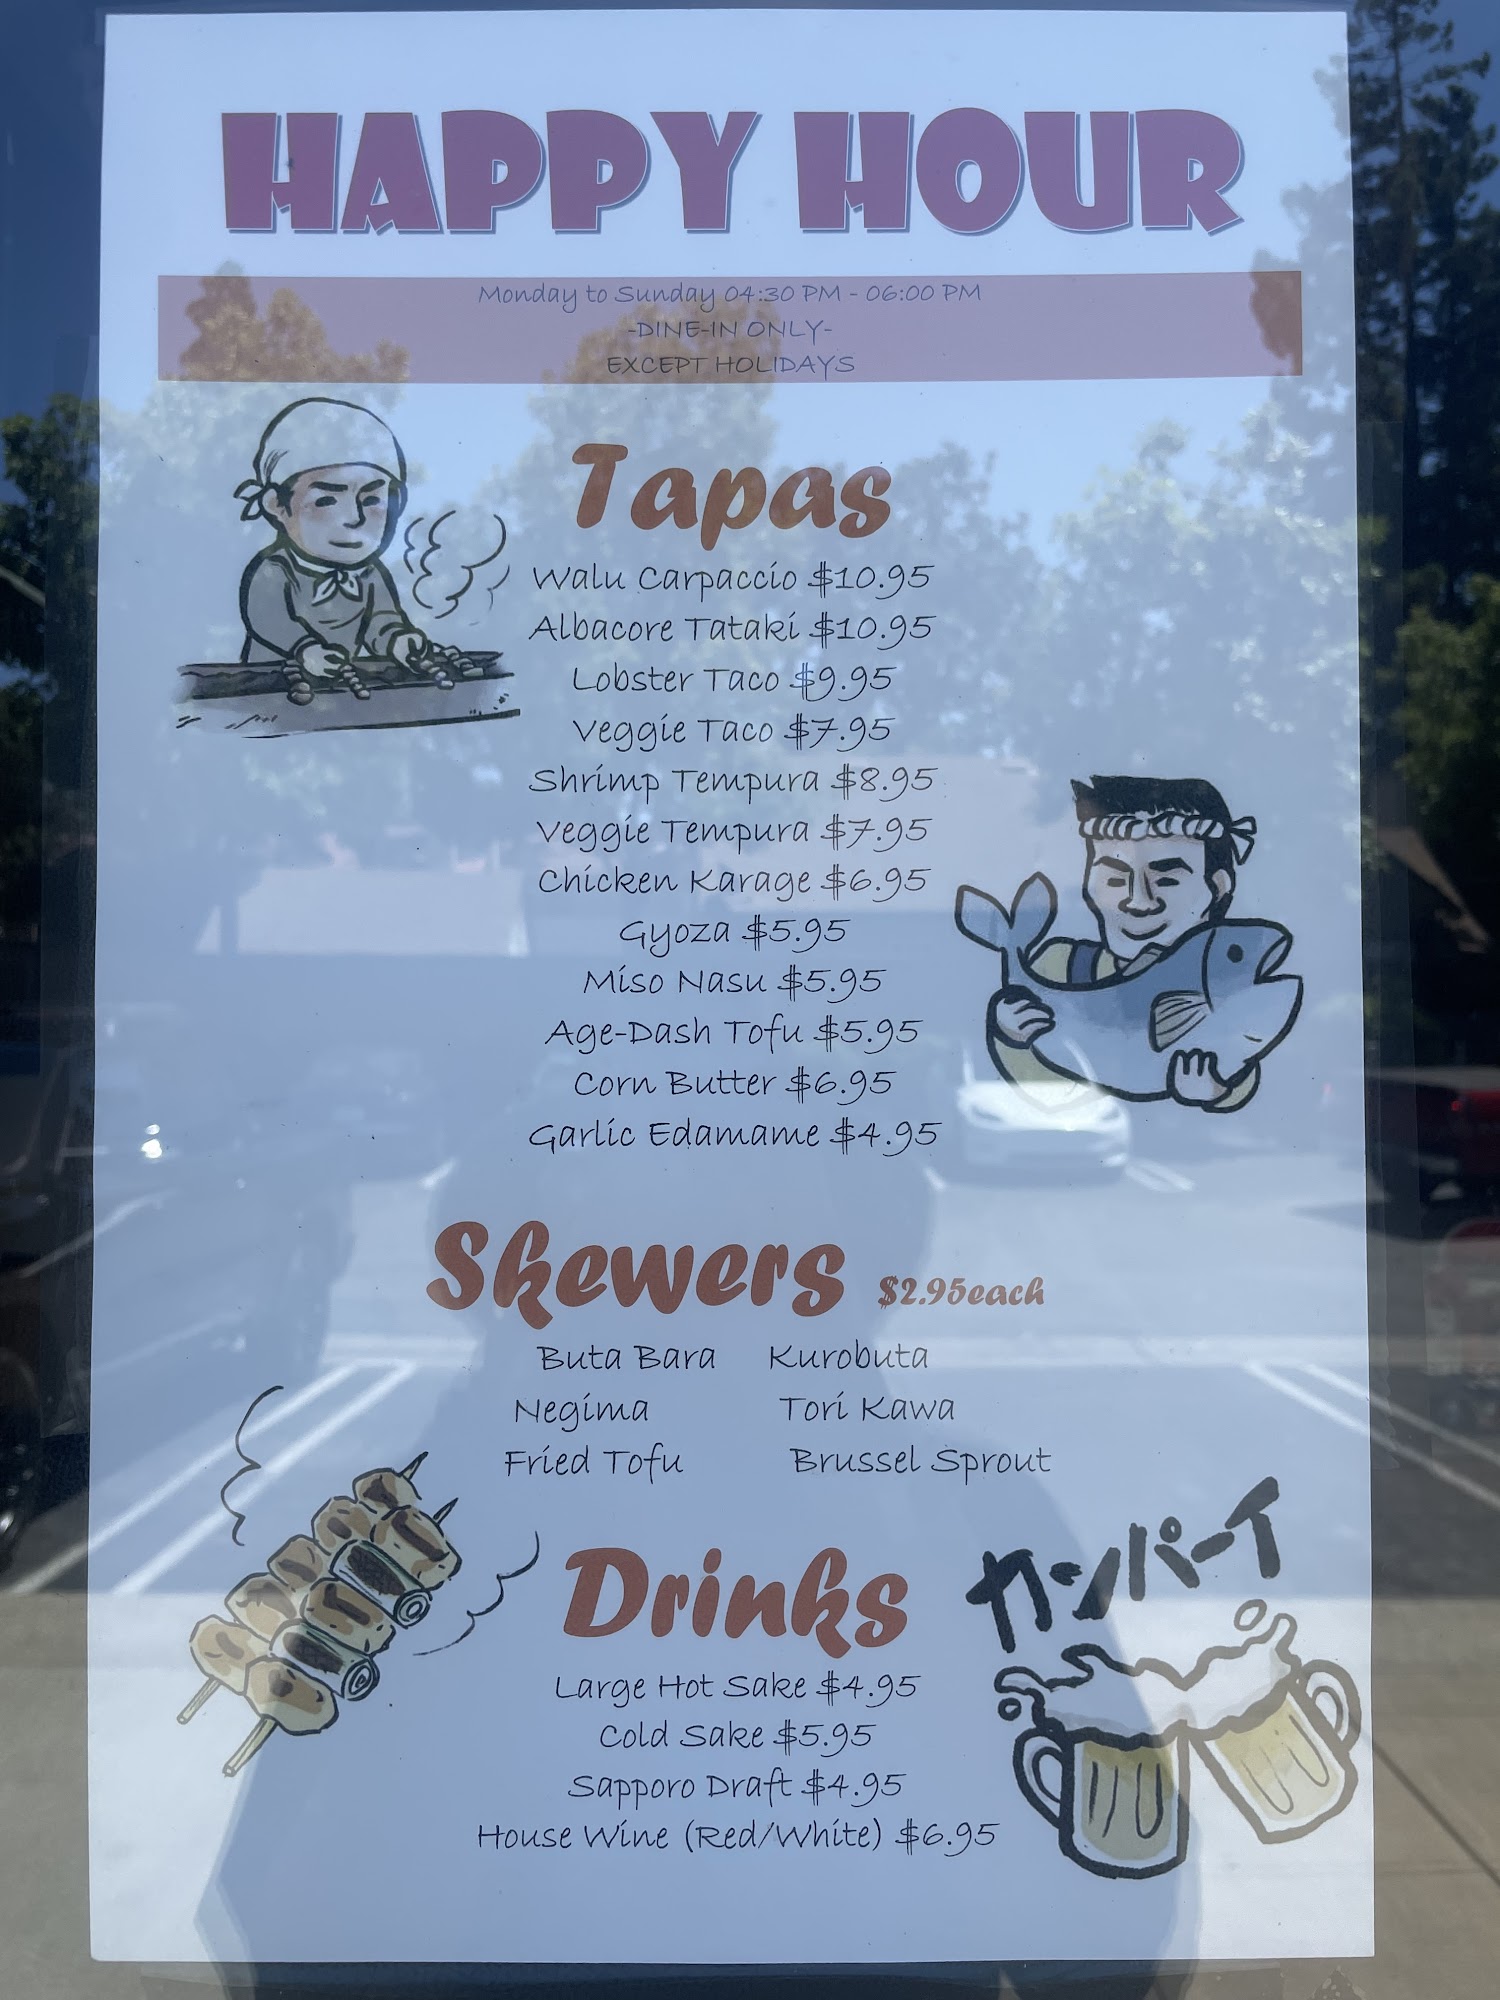 HAPPY HOUR
Monday to Sunday 04:30 PM - 06:00 PM
-DINE-IN ONLY-
EXCEPT HOLIDAYS
Tapas
Walu Carpaccio $10.95
Albacore Tataki $10.95
Lobster Taco $9.95
Veggie Taco $7.95
Shrimp Tempura $8.95
Veggie Tempura $7.95
Chicken Karage $6.95
Gyoza $5.95
Miso Nasu $5.95
Age-Dash Tofu $5.95
Corn Butter $6.95
Garlic Edamame $4.95
Skewers $2.95each
Buta Bara Kurobuta
Negima Tori Kawa
Fried Tofu Brussel Sprout
Drinks
カンパーイ
Large Hot Sake $4.95
Cold Sake $5.95
Sapporo Draft $4.95
House Wine (Red/White) $6.95